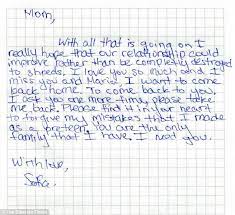 Mom,
With all that is going on I
really hope that our relationship could
improve rather than be completely destroyed
to shreds. I love you so much and I
miss you and Maria. I want to come
back home. To come back to you.
I ask you one more time, please take
me back. Please find it in your heart
to forgive my mistakes that I made
as a preteen. You are the only
family that I have. I need you.
With love,